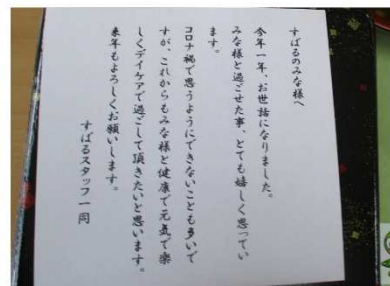 すばるのみな様へ
今年一年、お世話になりました。
みな様と過ごせた事、とても嬉しく思ってい
ます。
コロナ禍で思うようにできないことも多いで
すが、これからもみな様と健康で元気で楽
しくデイケアで過ごして頂きたいと思います。
来年もよろしくお願いします。
すばるスタッフ一同